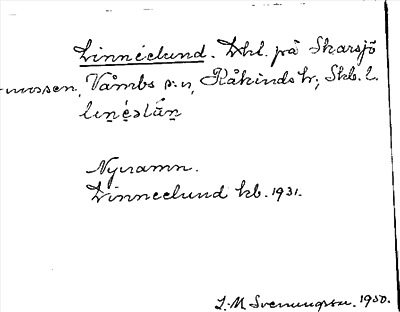 Linnéelund. Lhl. på Skarsjö
mossen, Våmbs sn, Kåkinds hr, Skb. l.
linéəlún̥

Nyvamn.
Linneelund kb. 1931.

L. M. Svenungsson. 1950.